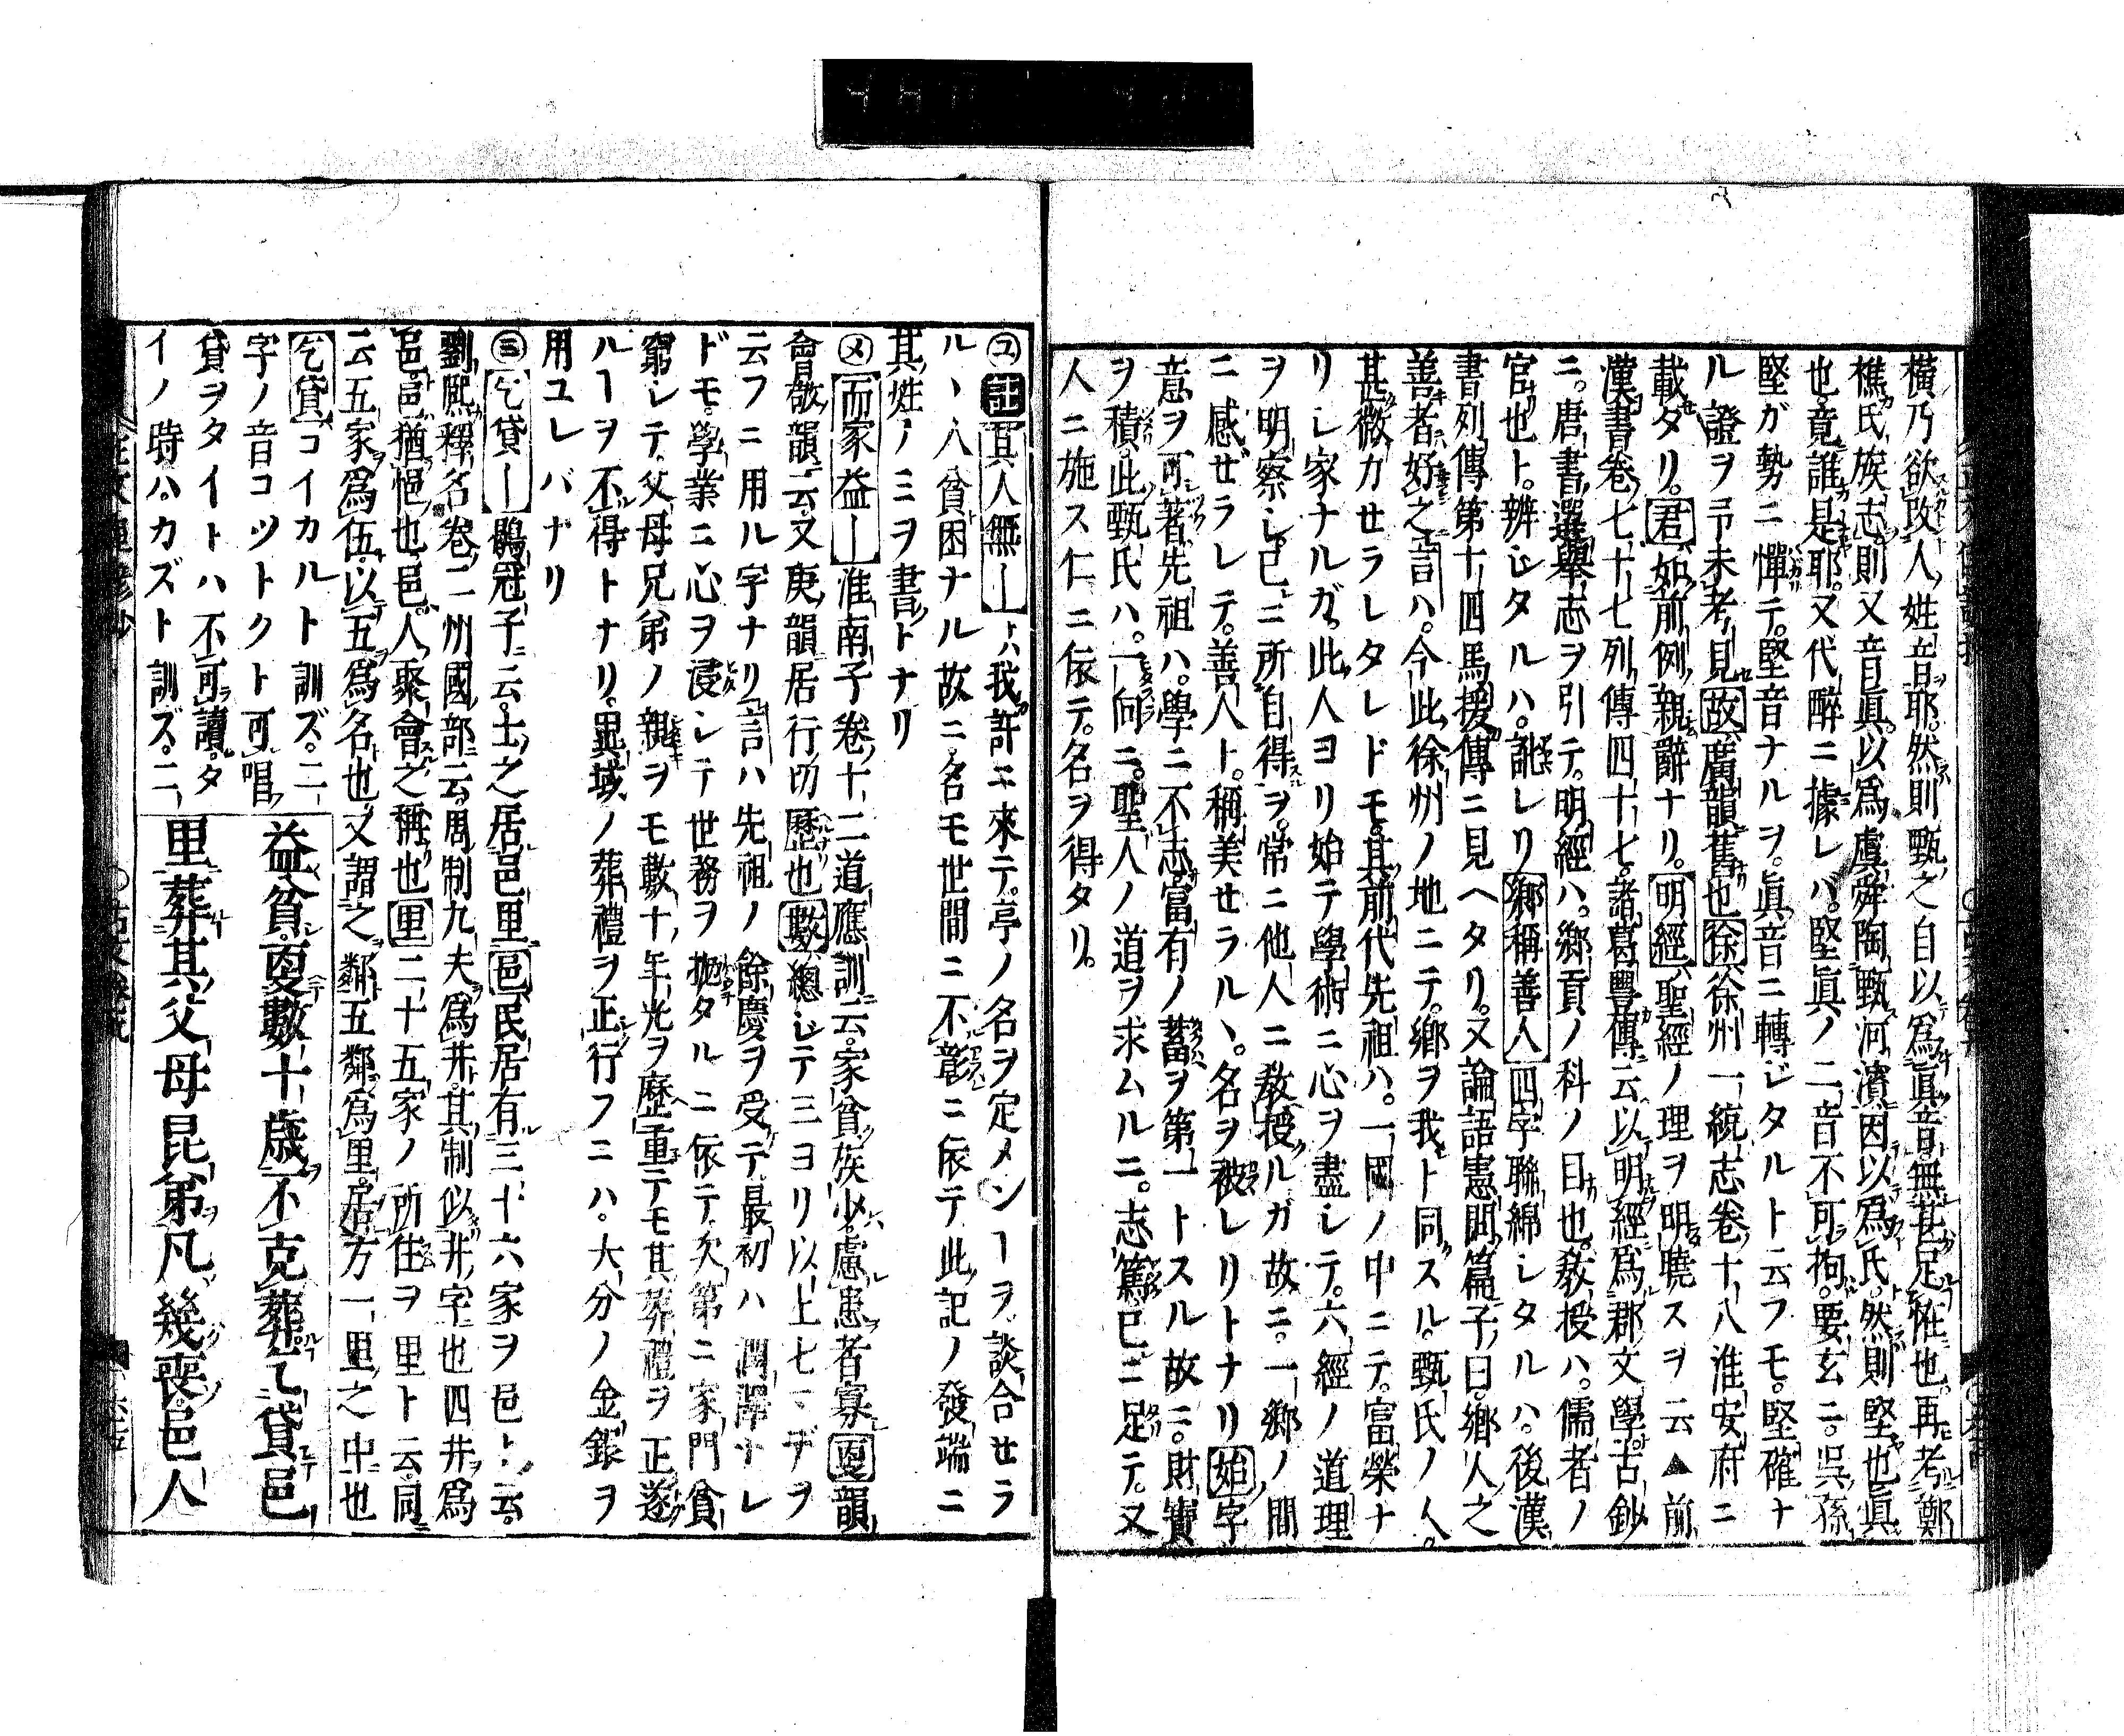 橫乃欲改人姓音耶然則甄之自以爲眞音無甚足怪也再考鄭
樵氏族志則又音眞以爲虞舜陶甄河濱因以爲氏然則堅也眞
也竟誰是耶又代醉ニ據レバ堅眞ノ二音不可拘要玄ニ吳孫
堅ガ勢ニ憚テ堅音ナルヲ眞音ニ轉ジタルト云フモ堅確ナ
ル證ヲ弔未考見故廣韻舊也徐徐州一統志卷十八淮安府ニ
載タリ君如前例親辭ナリ明經聖經ノ理ヲ明曉スヲ云▲前
漢書卷七十七列傳四十七諸葛豐傳云以明經爲郡文學古鈔
ニ唐書選舉志ヲ引テ明經ハ鄕貢ノ科ノ目也敎授ハ儒者ノ
官也ト辨シタルハ訛レリ鄕稱善人四字聯綿シタルハ後漢
書列傳第十四馬援傳ニ見ヘタリ又論語憲問篇子曰鄕人之
善者好之言ハ今此徐州ノ地ニテ鄕ヲ我ト同スル甄氏ノ人
甚微カセラレタレドモ其前代先祖ハ一國ノ中ニテ富榮ナ
リシ家ナルガ此人ヨリ始テ學術ニ心ヲ盡シテ六經ノ道理
ヲ明察シ已ニ所自得ヲ常ニ他人ニ敎授ルガ故ニ一鄕ノ間
ニ感ゼラレテ善人ト稱美セラル丶名ヲ被レリトナリ始字
意ヲ可著先祖ハ學ニ不志富有ノ蓄ヲ第一トスル故ニ財寶
ヲ積此甄氏ハ一向ニ聖人ノ道ヲ求ムルニ志篤已ニ足テ又
人ニ施ス仁ニ依テ名ヲ得タリ
ユ註其人無｜ハ我許ニ來テ亭ノ名ヲ定メンヿヲ談合セラ
ル丶人貧困ナル故ニ名モ世間ニ不彰ニ依テ此記ノ發端ニ
其姓ノミヲ書トナリ
メ而家益｜淮南子卷十二道應訓云家貧族少慮患者寡更韻
會敬韻云又庚韻居行切歷也數總シテ三ヨリ以上七マデヲ
云フニ用ル字ナリ言ハ先祖ノ餘慶ヲ受テ最初ハ潤澤ナレ
ドモ學業ニ心ヲ浸シテ世務ヲ抛タルニ依テ次第ニ家門貧
窮シテ父母兄弟ノ親ヲモ數十年光ヲ歷重テモ其葬禮ヲ正遂
ルヿヲ不得トナリ異域ノ葬禮ヲ正行フニハ大分ノ金銀ヲ
用ユレバナリ
ミ乞貸｜鶡冠子云士之居邑里邑民居有三十六家ヲ邑ト云
劉熙釋名卷二州國部云周制九夫爲井其制似井字也四井爲
邑邑猶悒也邑人聚會之稱也里二十五家ノ所住ヲ里ト云同
云五家爲伍以五爲名也又謂之鄰五鄰爲里居方一里之中也
乞貸コイカルト訓ズ二
字ノ音コツトクト可唱
貸ヲタイトハ不可讀タ
イノ時ハカズト訓ズ二
益貧更數十歳不克葬乞貸邑
里葬其父母昆弟凡幾喪邑人